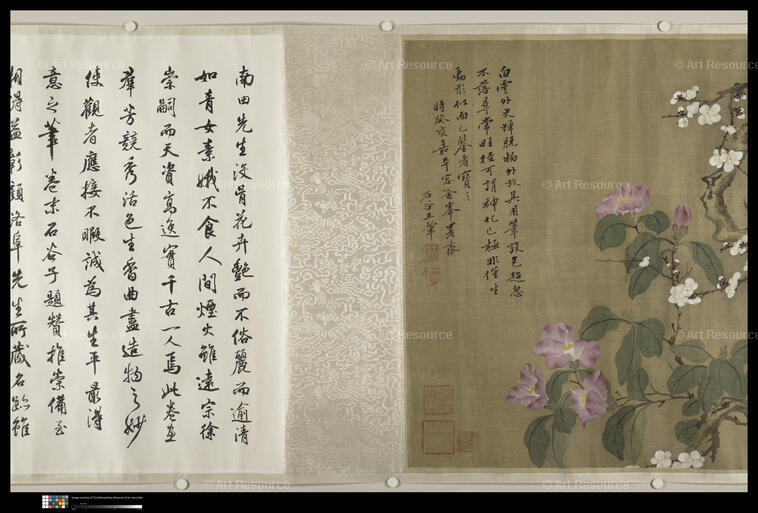 白雲外史蟬脱物外故其用筆設色超忽
不落尋常畦徑可謂神化已極非僅生
動形似而已鑒者寶之
時癸亥嘉平客金峯署齋
石谷王翬
南田先生沒骨花卉艷而不俗麗而逾清
如青女素娥不食人間煙火雖遠宗徐
崇嗣而天資高逸實千古一人焉此卷畫
羣芳競秀活色生香曲盡造物之妙
使觀者應接不暇誠為其生平最得
意之筆卷末石谷子題贊推崇備至
相得益彰顧洛阜先生所藏名跡雖
© Art Resource
Image courtesy of The Metropolitan Museum of Art, New York